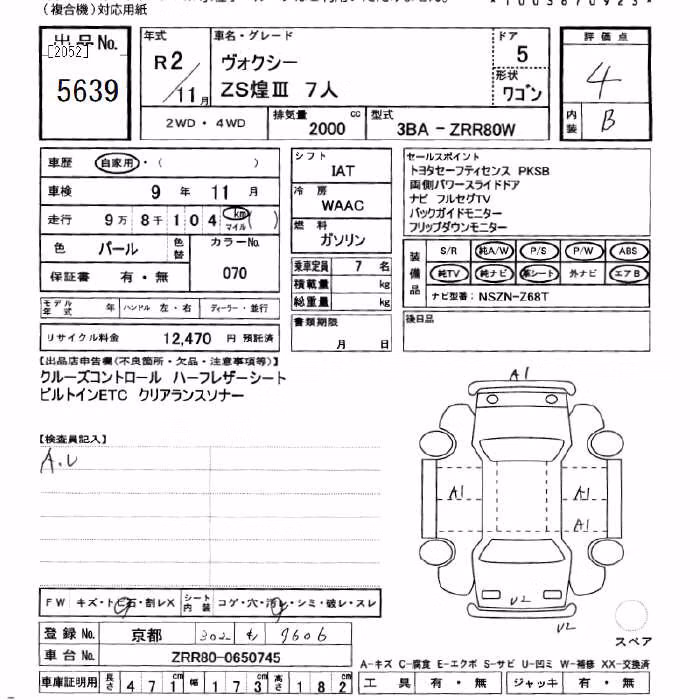 (複合機)対応用紙
出品No.
[2052]
5639
年式
R2/11月
車名・グレード
ヴォクシー
ZS煌Ⅲ 7人
ドア
5
形状
ワゴン
評価点
4
内装
B
2WD・4WD
排気量
2000
cc
型式
3BA - ZRR80W
車歴 自家用・( )
車検 9 年 11 月
走行 9万 8千 1 0 4 km マイル ( )
色 パール 色替 カラーNo.
070
保証書 有・無
モデル年式 年 ハンドル 左・右 ディーラー・並行
リサイクル料金 12,470 円 預託済
シフト
IAT
冷房
WAAC
燃料
ガソリン
乗車定員 7 名
積載量 kg
総重量 kg
書類期限
月 日
セールスポイント
トヨタセーフティセンス PKSB
両側パワースライドドア
ナビ フルセグTV
バックガイドモニター
フリップダウンモニター
装備品
S/R 純A/W P/S P/W ABS
純TV 純ナビ 革シート 外ナビ エアB
ナビ型番: NSZN-Z68T
後日品
【出品店申告欄(不良箇所・欠品・注意事項等)】
クルーズコントロール ハーフレザーシート
ビルトインETC クリアランスソナー
【検査員記入】
A.U
A1
A1
A1
A1
U2
U2
スペア
FW キズ・トビ石・割レX シート内装 コゲ・穴・汚レ・シミ・破レ・スレ
登録No. 京都 302 9606
車台No. ZRR80-0650745
車庫証明用 長さ 4 7 1 幅 1 7 3 高さ 1 8 2
A-キズ C-腐食 E-エクボ S-サビ U-凹ミ W-補修 XX-交換済
工具 有・無 ジャッキ 有・無